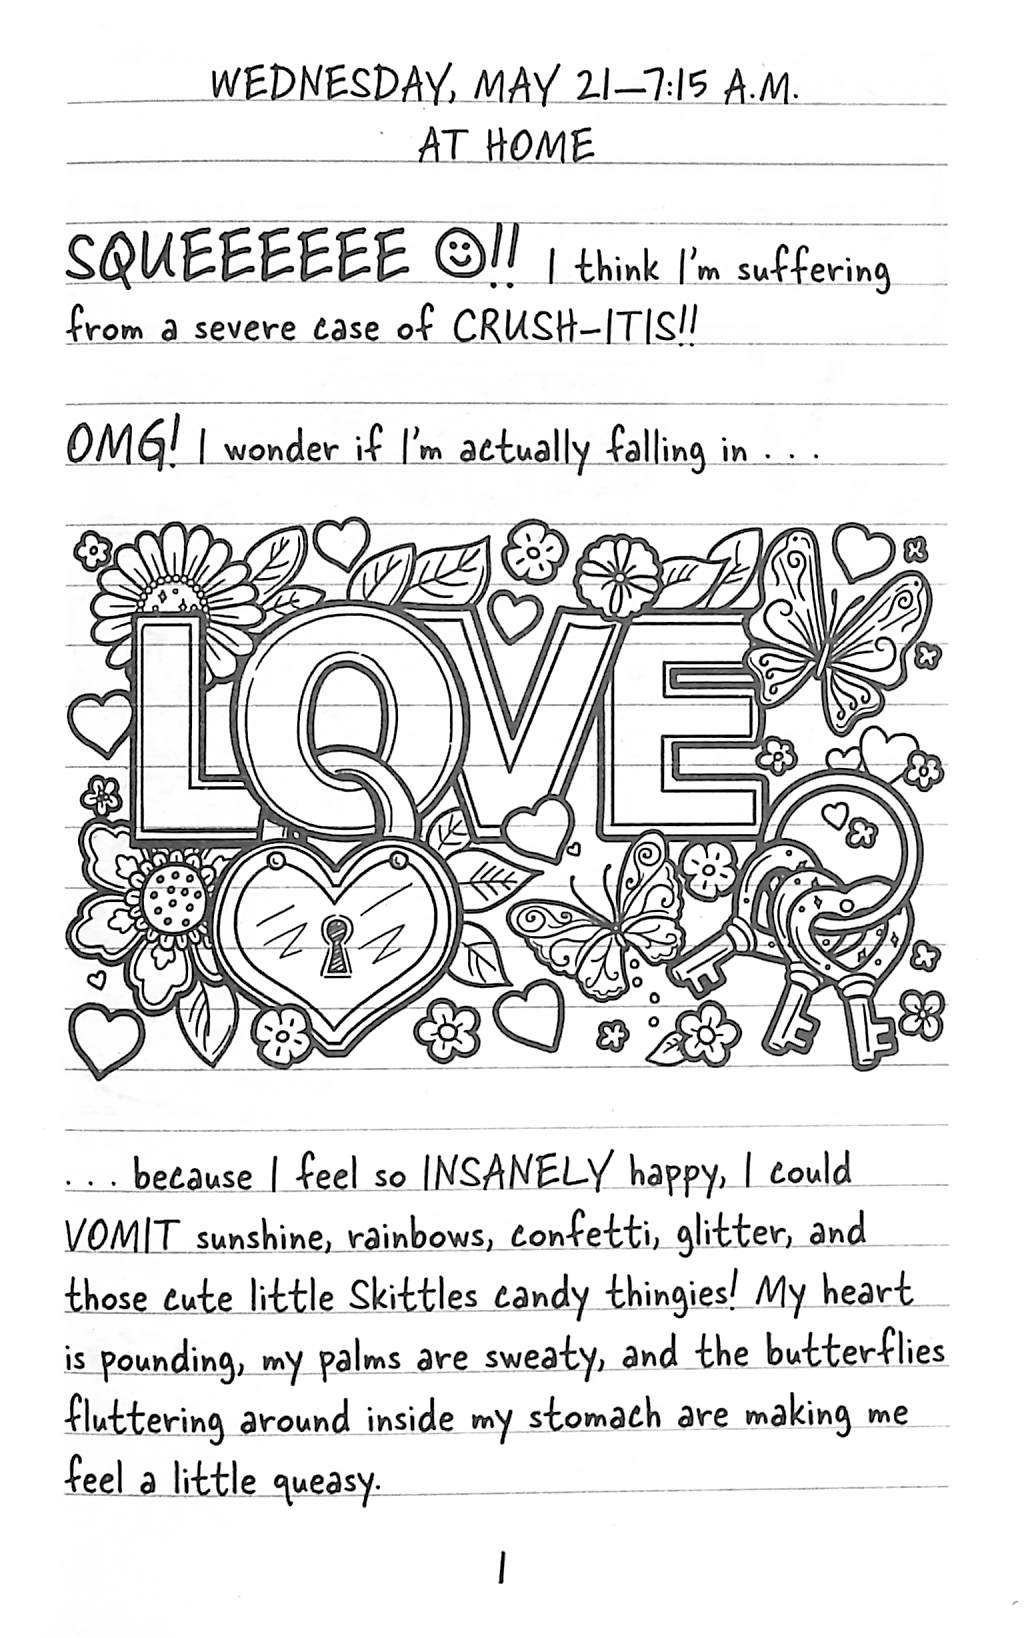 WEDNESDAY, MAY 21—7:15 A.M.
AT HOME
SQUEEEEEEE ☺!! I think I'm suffering
from a severe case of CRUSH-ITIS!!
OMG! I wonder if I'm actually falling in . . .
LOVE
. . . because I feel so INSANELY happy, I could
VOMIT sunshine, rainbows, confetti, glitter, and
those cute little Skittles candy thingies! My heart
is pounding, my palms are sweaty, and the butterflies
fluttering around inside my stomach are making me
feel a little queasy.
1